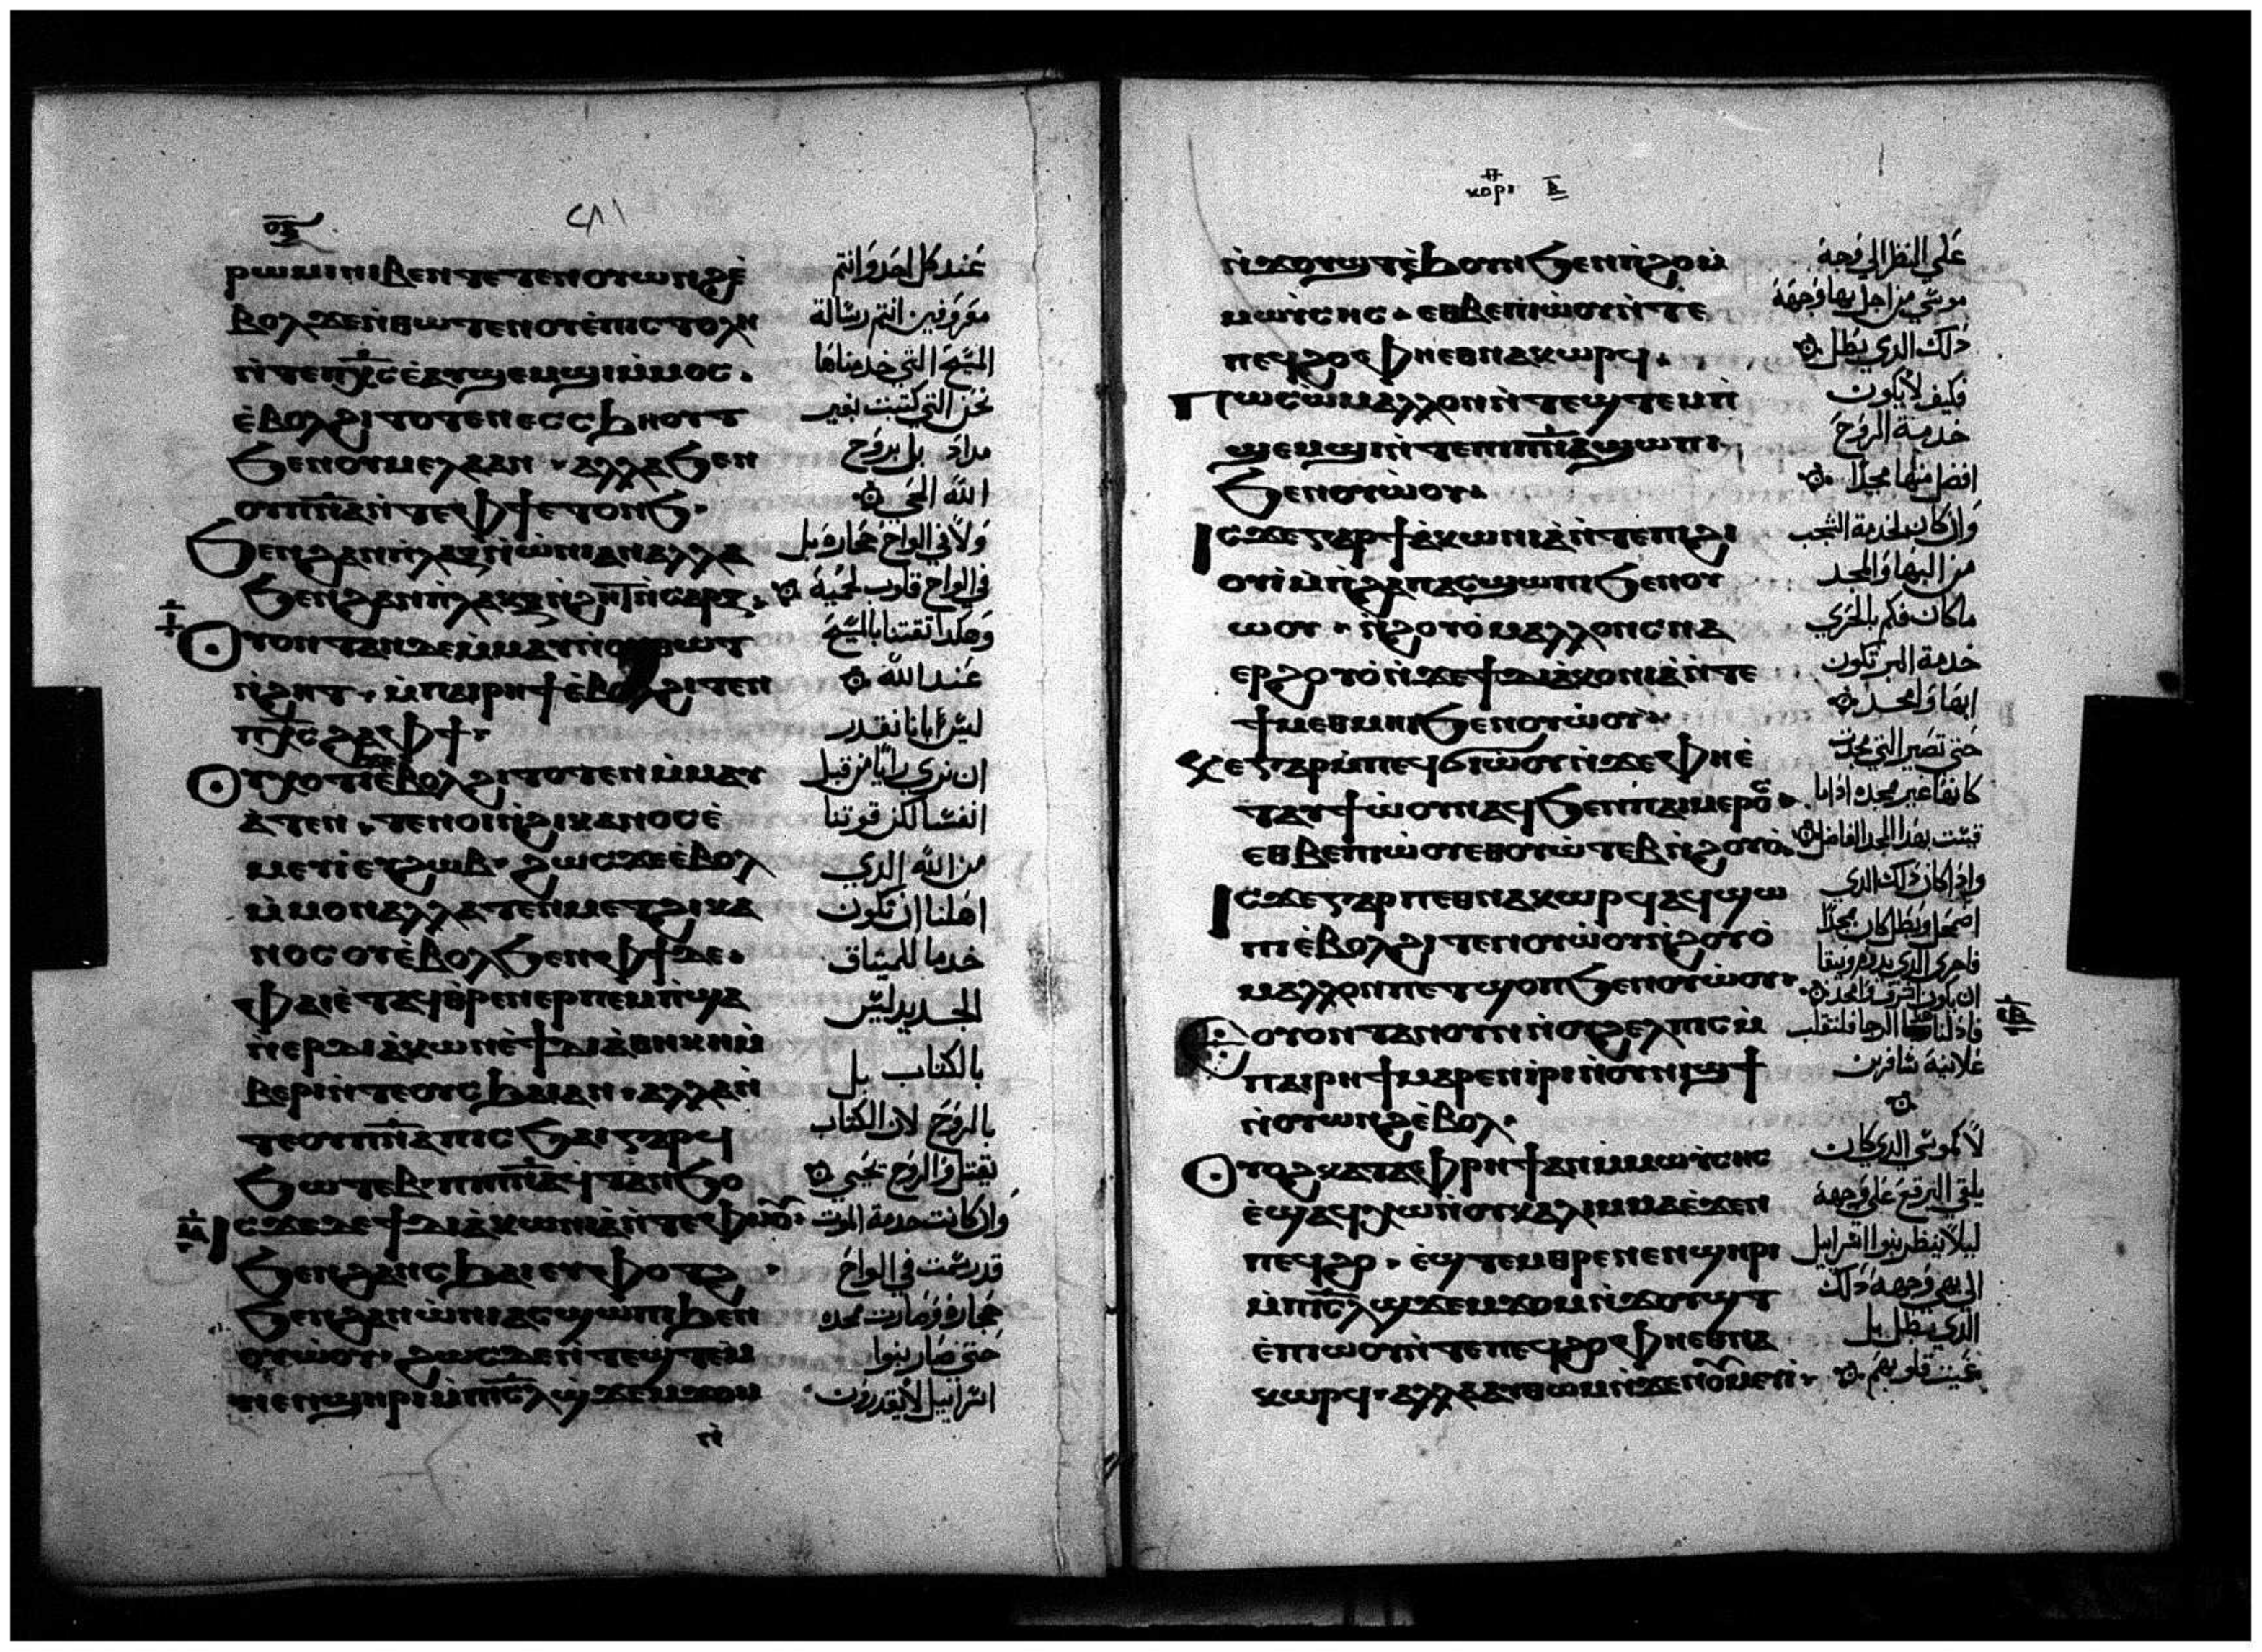 ⲟⲝ
٢٨١
ⲣⲱⲙⲓ ⲛⲓⲃⲉⲛ ⲧⲉⲧⲉⲛⲟⲩⲱⲛϩ ⲉ̀
ⲃⲟⲗ ϫⲉ ⲛ̀ⲑⲱⲧⲉⲛ ⲟⲩⲉ̀ⲡⲓⲥⲧⲟⲗⲏ
ⲛ̀ⲧⲉ ⲡⲭ̅ⲥ ⲉ̀ⲁⲩϣⲉⲙϣⲓ ⲙ̀ⲙⲟⲥ.
ⲉ̀ⲃⲟⲗϩⲓⲧⲟⲧⲉⲛ ⲉⲥⲥϧⲏⲟⲩⲧ
ϧⲉⲛ ⲟⲩⲙⲉⲗⲁ ⲁⲛ. ⲁⲗⲗⲁ ϧⲉⲛ
ⲟⲩⲡ̅ⲛ̅ⲁ ⲛ̀ⲧⲉ ⲫϯ ⲉⲧⲟⲛϧ.
ϧⲉⲛ ϩⲁⲛⲡ̀ⲗⲁⲝ ⲛ̀ⲱ̀ⲛⲓ ⲁⲛ ⲁⲗⲗⲁ
ϧⲉⲛ ϩⲁⲛⲡ̀ⲗⲁⲝ ⲛ̀ϩⲏⲧ ⲛ̀ⲥⲁⲣⲝ.
ⲓ̅
ⲟⲩⲟⲛⲧⲁⲛ ⲇⲉ ⲙ̀ⲙⲁⲩ ⲛ̀ⲟⲩⲑⲱⲧ
ⲛ̀ϩⲏⲧ. ⲙ̀ⲡⲁⲓⲣⲏϯ ⲉ̀ⲃⲟⲗϩⲓⲧⲉⲛ
ⲡⲭ̅ⲥ ϩⲁ ⲫϯ.
ⲟⲩⲭ ⲟⲧⲓ ⲉ̀ⲃⲟⲗϩⲓⲧⲟⲧⲉⲛ ⲙ̀ⲙⲁⲩ
ⲁ̀ⲧⲉⲛ. ⲧⲉⲛⲟⲓ ⲛ̀ϩⲓⲕⲁⲛⲟⲥ ⲉ̀
ⲙⲉⲩⲓ ⲉⲩϩⲱⲃ. ϩⲱⲥ ϫⲉ ⲉ̀ⲃⲟⲗ
ⲙ̀ⲙⲟⲛ ⲁⲗⲗⲁ ⲧⲉⲛⲙⲉⲧϩⲓⲕⲁ
ⲛⲟⲥ ⲟⲩⲉ̀ⲃⲟⲗϧⲉⲛ ⲫϯ ⲧⲉ.
ⲫⲁⲓ ⲉ̀ⲧⲁϥⲑ̀ⲣⲉⲛⲉⲣⲡⲉⲙⲡ̀ϣⲁ
ⲛ̀ⲉⲣⲇⲓⲁⲕⲱⲛ ⲉ̀ϯⲇⲓⲁ̀ⲑⲏⲕⲏ ⲙ̀
ⲃⲉⲣⲓ ⲛ̀ⲧⲉ ⲟⲩⲥϧⲁⲓ ⲁⲛ. ⲁⲗⲗⲁ ⲛ̀
ⲧⲉ ⲟⲩⲡ̅ⲛ̅ⲁ ⲡⲓⲥϧⲁⲓ ⲅⲁⲣ ϥ
ϧⲱⲧⲉⲃ ⲡⲓⲡ̅ⲛ̅ⲁ ϥⲧⲁⲛϧⲟ
ⲓ̅ⲁ̅
ⲓⲥϫⲉ ⲇⲉ ϯⲇⲓⲁ̀ⲕⲱⲛⲓⲁ̀ ⲛ̀ⲧⲉ ⲫⲙⲟ̅
ϧⲉⲛ ϩⲁⲛⲥϧⲁⲓ ⲉⲩⲫⲟⲧϩ .
ϧⲉⲛ ϩⲁⲛⲱ̀ⲛⲓ ⲁⲥϣⲱⲡⲓ ϧⲉⲛ
ⲟⲩⲱ̀ⲟⲩ. ϩⲱⲥ ϫⲉ ⲛ̀ⲧⲉϣⲧⲉⲙ
ⲛⲉⲛϣⲏⲣⲓ ⲙ̀ⲡⲓⲥ̅ⲗ ϣϫⲉⲙϫⲟⲙ
ⲛ̀
عند كل احد وانتم
معروفين انتم رسالة
المسيح التي خدمناها
نحن التي كتبت بغير
مداد بل بروح
الله الحي
ولا في الواح حجاره بل
في الواح قلوب لحمية
وهكدا تقتنا بالمسيح
عند الله
ليس اباانا نقدر
ان نري رايا من قبل
انفسنا لكن قوتنا
من الله الدي
اهلنا ان نكون
خدما للميثاق
الجديد ليس
بالكتاب بل
بالروح لان الكتاب
تقتل والروح تحيي
وان كانت خدمة الموت
قد رسمت في الواح
حجاره وصارت بمجده
حتى صار بنوا
اسراييل لا يقدرون
ⲕⲟⲣⲓ ⲃ̅
ⲛ̀ϫⲟⲩϣⲧ ⲉ̀ϧⲟⲩⲛ ϧⲉⲛ ⲡ̀ϩⲟ ⲙ̀
ⲙⲱⲩ̀ⲥⲏⲥ. ⲉⲑⲃⲉ ⲡⲓⲱ̀ⲟⲩ ⲛ̀ⲧⲉ
ⲡⲉϥϩⲟ ⲫⲏⲉⲑⲛⲁⲕⲱⲣϥ.
ⲡⲱⲥ ⲱ̀ ⲙⲁⲗⲗⲟⲛ ⲛ̀ⲧⲉϣⲧⲉⲙ ⲡ̀
ϣⲉⲙϣⲓ ⲛ̀ⲧⲉ ⲡⲓⲡ̅ⲛ̅ⲁ ϣⲱⲡⲓ
ϧⲉⲛ ⲟⲩⲱ̀ⲟⲩ.
ⲓⲥϫⲉ ⲅⲁⲣ ϯⲇⲓⲁⲕⲱⲛⲓⲁ̀ ⲛ̀ⲧⲉ ⲡⲓϩⲓ
ⲟⲩⲓ̀ ⲙ̀ⲡ̀ϩⲁⲡ ⲁⲥϣⲱⲡⲓ ϧⲉⲛ ⲟⲩ
ⲱⲟⲩ. ⲛ̀ϩⲟⲩⲟ̀ ⲙⲁⲗⲗⲟⲛ ⲥⲛⲁ
ⲉⲣϩⲟⲩⲟ̀ ⲛ̀ϫⲉ ϯⲇⲓⲁⲕⲟⲛⲓⲁ̀ ⲛ̀ⲧⲉ
ϯⲙⲉⲑⲙⲏⲓ ϧⲉⲛ ⲟⲩⲱ̀ⲟⲩ
ⲕⲉ ⲅⲁⲣ ⲙ̀ⲡⲉϥϭⲓⲱ̀ⲟⲩ ⲛ̀ϫⲉ ⲫⲏⲉ̀
ⲧⲁⲩϯⲱ̀ⲟⲩ ⲛⲁϥ ϧⲉⲛ ⲡⲁⲓⲙⲉⲣⲟⲥ
ⲉⲑⲃⲉ ⲡⲓⲱ̀ⲟⲩ ⲉⲑⲟⲩⲱ̀ⲧⲉⲃ ⲛ̀ϩⲟⲩⲟ̀.
ⲓⲥϫⲉ ⲅⲁⲣ ⲡⲉⲑⲛⲁⲕⲱⲣϥ ⲁϥϣⲱ
ⲡⲓ ⲉ̀ⲃⲟⲗϩⲓⲧⲉⲛ ⲟⲩⲱ̀ⲟⲩ ⲛ̀ϩⲟⲩⲟ̀
ⲙⲁⲗⲗⲟⲛ ⲡⲉⲧϣⲟⲡ ϧⲉⲛ ⲟⲩⲱ̀ⲟⲩ.
ⲓ̅ⲃ̅
ⲉⲟⲩⲟⲛⲧⲁⲛ ⲟⲩⲛ ⲛ̀ⲟⲩϩⲉⲗⲡⲓⲥ ⲙ̀
ⲡⲁⲓⲣⲏϯ ⲙⲁⲣⲉⲛⲓ̀ⲣⲓ ⲛ̀ⲟⲩⲛⲓϣϯ
ⲛ̀ⲟⲩⲱⲛϩ ⲉ̀ⲃⲟⲗ.
ⲟⲩⲟϩ ⲕⲁⲧⲁ ⲫⲣⲏϯ ⲁⲛ ⲙ̀ⲙⲱⲩ̀ⲥⲏⲥ
ⲉ̀ϣⲁϥⲭⲱ ⲛ̀ⲟⲩⲕⲁⲗⲩⲙⲙⲁ ⲉ̀ϫⲉⲛ
ⲡⲉϥϩⲟ. ⲉ̀ϣⲧⲉⲙⲑⲣⲉ ⲛⲉⲛϣⲏⲣⲓ
ⲙ̀ⲡⲓⲥ̅ⲗ ϣϫⲉⲙϫⲟⲙ ⲛ̀ϫⲟⲩϣⲧ
ⲉ̀ⲡⲓⲱⲟⲩ ⲛ̀ⲧⲉ ⲡⲉϥϩⲟ ⲫⲏⲉⲑⲛⲁ
ⲕⲱⲣϥ. ⲁⲗⲗⲁ ⲁⲩⲑⲱⲙ ⲛ̀ϫⲉ ⲛⲟⲩⲙⲉⲩⲓ.
علي النظر الي وجه
موسي من اجل بها وجهه
دلك الدي يبطل
فكيف لا يكون
خدمة الروح
افضل منها مجدا
وان كان لخدمة الشجب
من البها والمجد
ما كان فكم بالحري
خدمة البر تكون
ابها وامجد
حتى تصير التي مجدت
كانها غير مجده اذا ما
قيست بهدا المجد الفاضل
واذا كان دلك الدي
اضمحل وبطل كان مجدا
فاحرى الدي يدوم ويبقا
ان يكون اشرف وامجد
فاذ لنا هدا الرجا فلنتقلب
علانية سافرين
لا كموسي الدي كان
يلقي البرقع علي وجهه
ليلا ينظر بنوا اسراييل
الي بهي وجهه دلك
الدي يبطل بل
عميت قلوبهم